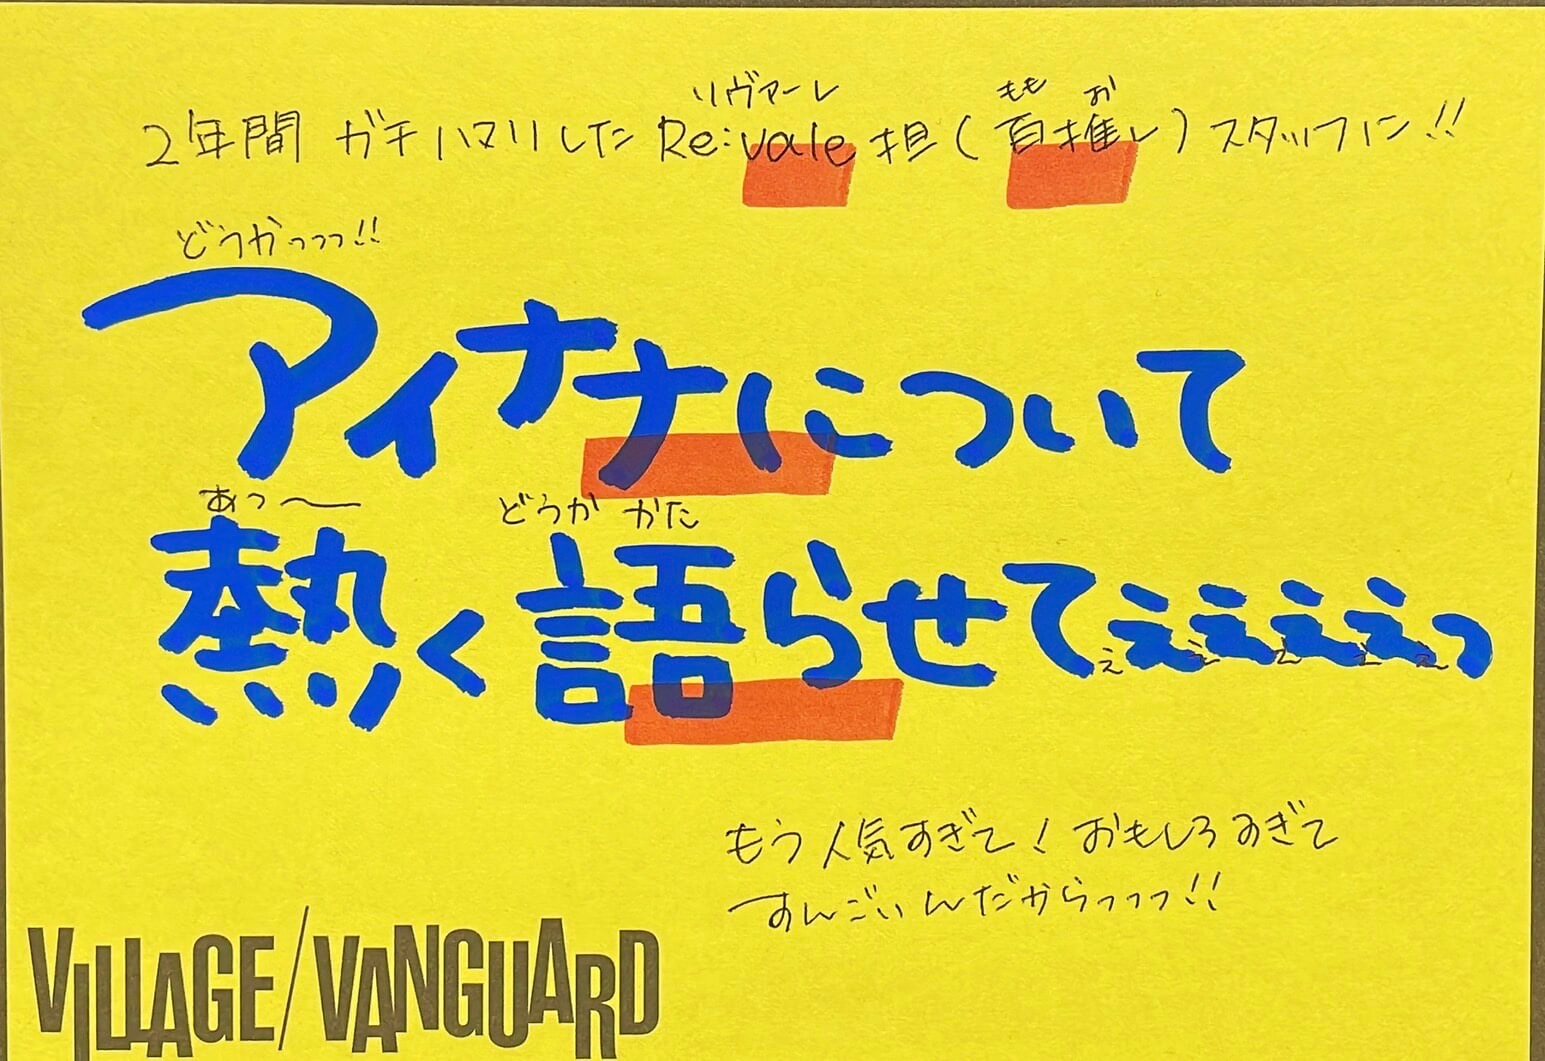 リヴァーレ もも お
2年間 ガチハマリした Re:vale担(百推し)スタッフに!!
どうかっっっ!!
アイナナについて
あっ〜 どうか かた
熱く語らせてぇぇぇぇっ
ぇぇぇぇぇ
もう人気すぎて!おもしろすぎて
すんごいんだからっっっ!!
VILLAGE/VANGUARD